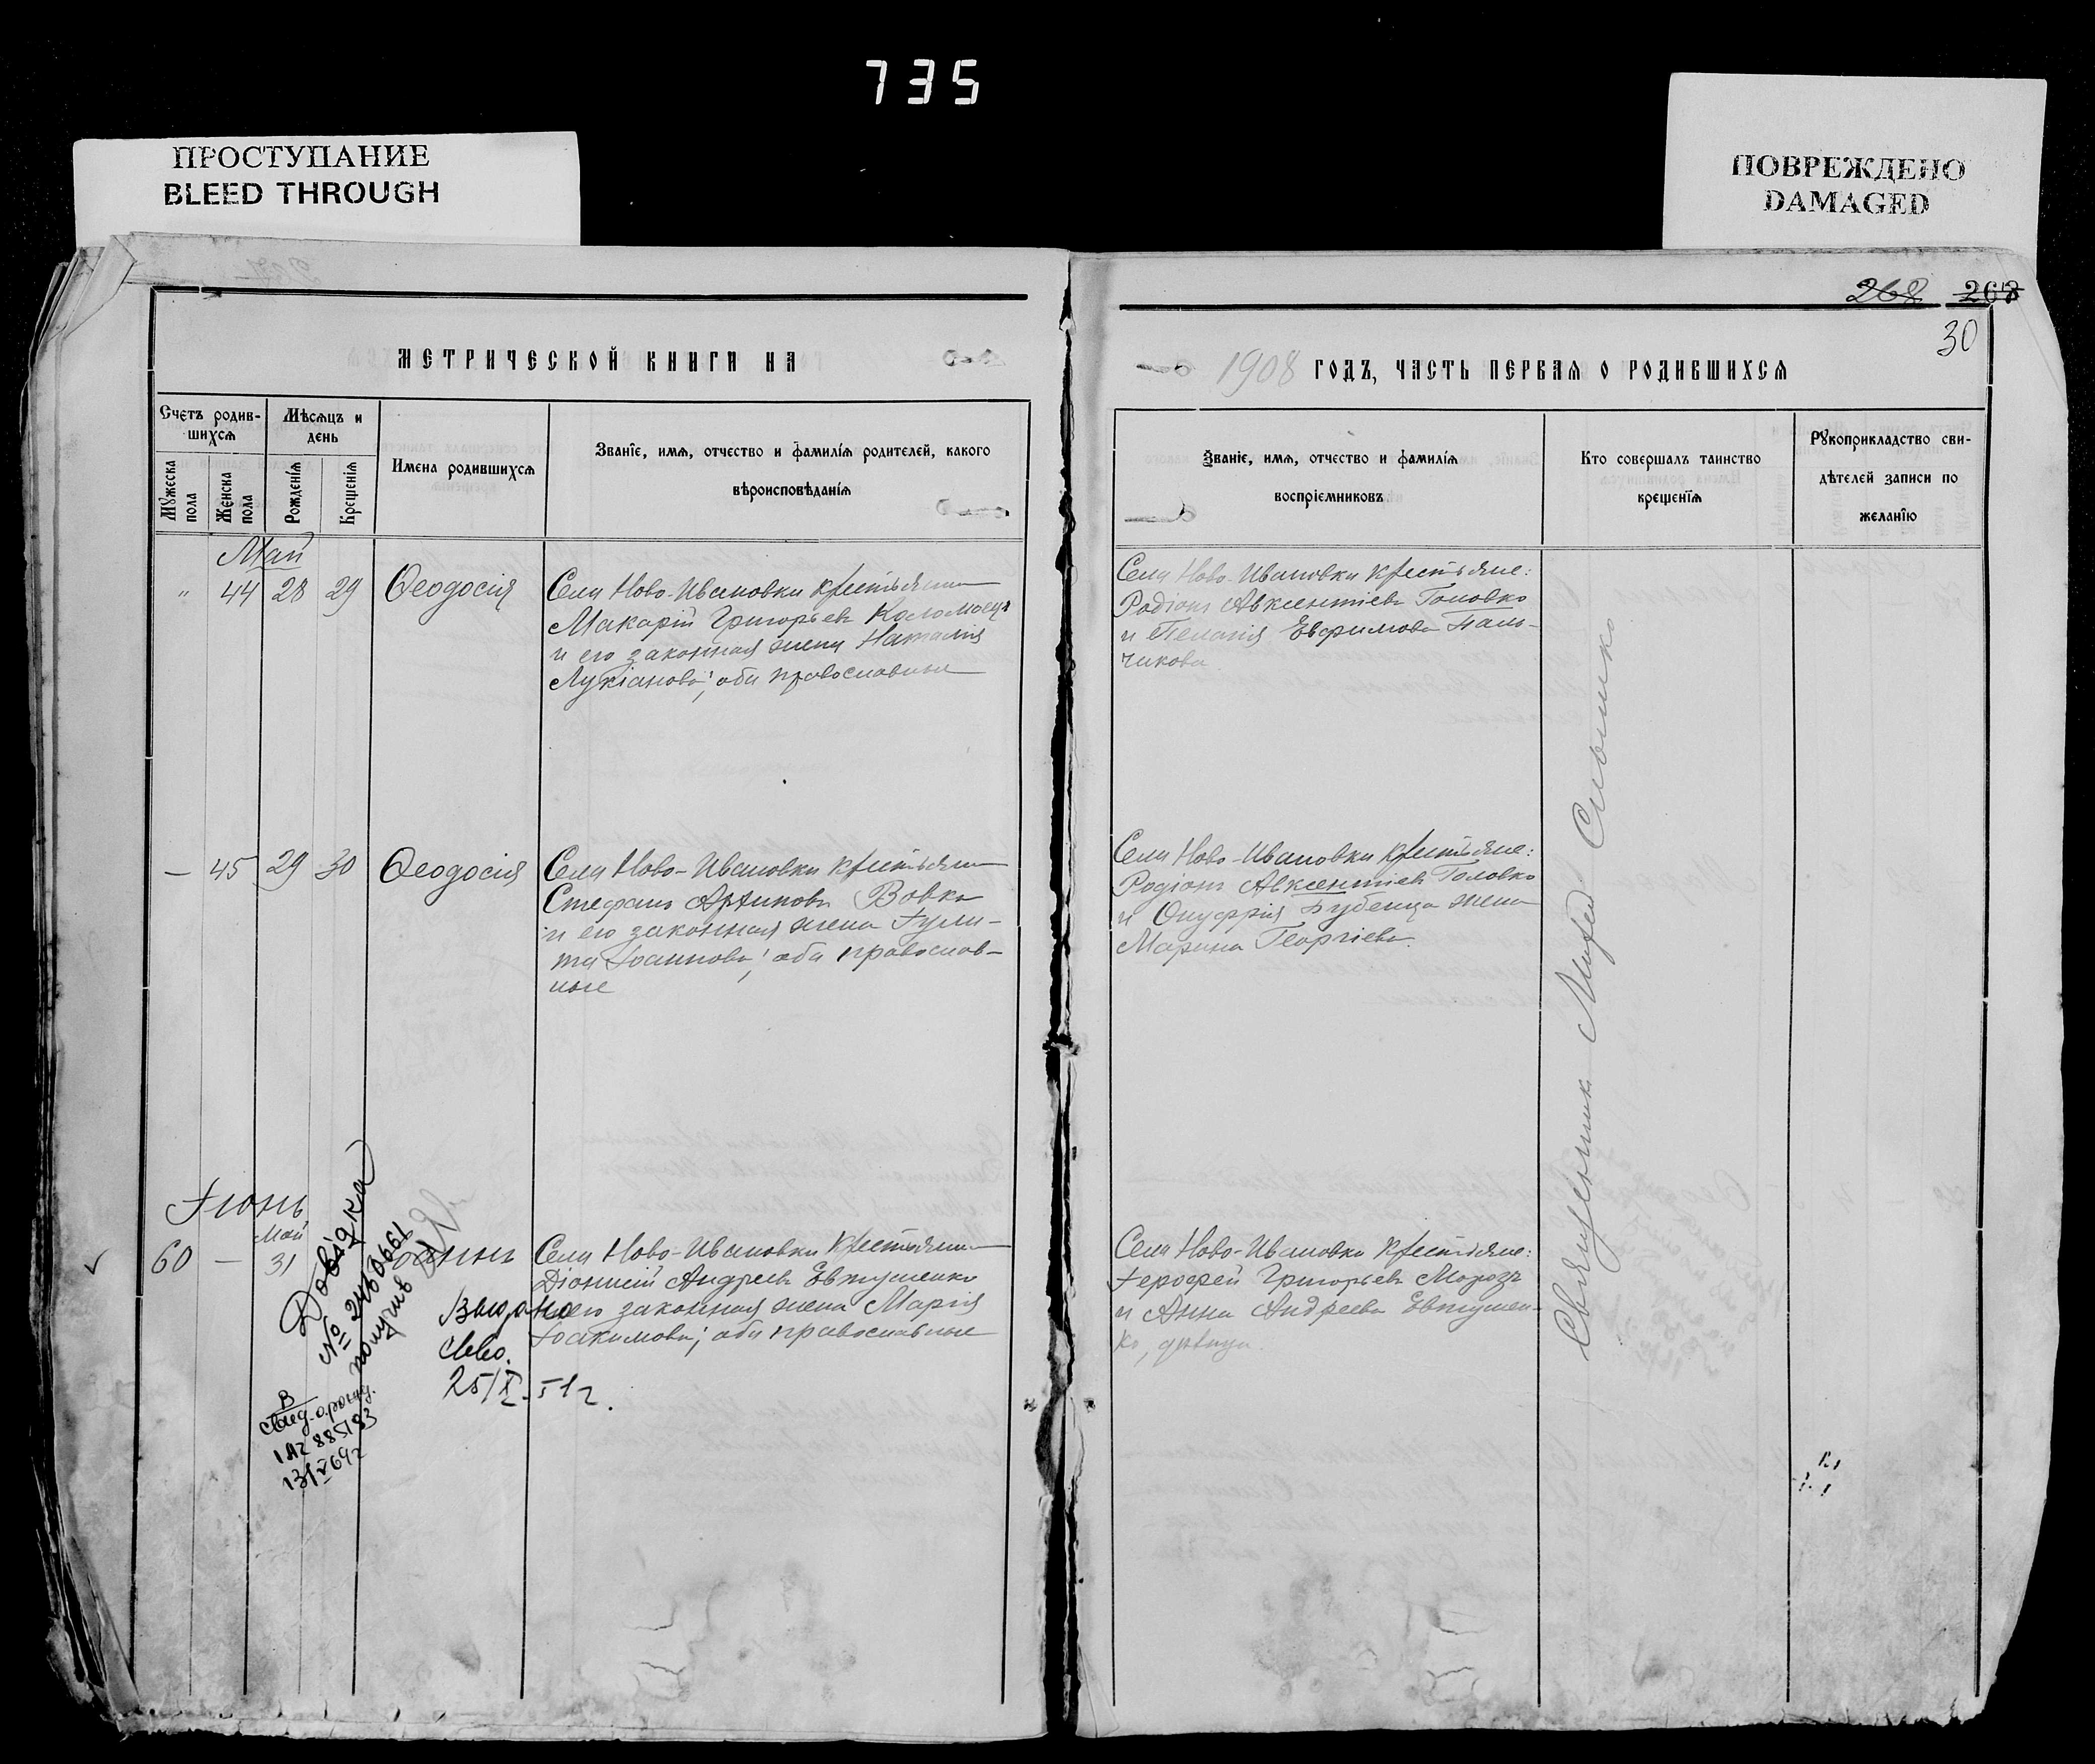 735
ПРОСТУПАНИЕ
BLEED THROUGH
ПОВРЕЖДЕНО
DAMAGED
268 267
30
МЕТРИЧЕСКОЙ КНИГИ НА
1908 ГОДЪ, ЧАСТЬ ПЕРВАЯ О РОДИВШИХСЯ
Счетъ родив-
шихся
Мѣсяцъ и
день
Мужеска пола
Женска пола
Рожденія
Крещенія
Имена родившихся
Званіе, имя, отчество и фамилія родителей, какого
вѣроисповѣданія
Званіе, имя, отчество и фамилія
воспріемниковъ
Кто совершалъ таинство
крещенія
Рукоприкладство сви-
дѣтелей записи по
желанію
Май
" 44 28 29 Ѳеодосія
Села Ново-Ивановки крестьянинъ
Макарій Григорьевъ Коломоецъ
и его законная жена Наталія
Лукіанова; оба православные
Села Ново-Ивановки крестьяне:
Родіонъ Авксентіевъ Головко
и Пелагія Евфимова Паль-
чикова
— 45 29 30 Ѳеодосія
Села Ново-Ивановки крестьянинъ
Стефанъ Архиповъ Вовкъ
и его законная жена Іули-
та Іоаннова; оба православ-
ные
Села Ново-Ивановки крестьяне:
Родіонъ Авксентіевъ Головко
и Онуфрія Бубенца жена
Марина Георгіева.
Іюнь
Май
60 — 31
Села Ново-Ивановки крестьянинъ
Діонисій Андреевъ Евтушенко
и его законная жена Марія
Іоакимова; оба православные
Села Ново-Ивановки крестьяне:
Іерофей Григорьевъ Морозъ
и Анна Андреева Евтушен-
ко, девица.
Довідка
№ 2460661
получив
Выдано
свво.
25/X-51г.
В
Свид. о рожд.
13/V 69г
Священникъ